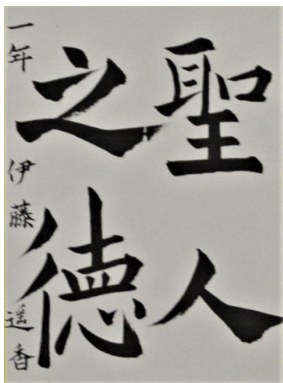 聖人
之徳
一年 伊藤 遥香